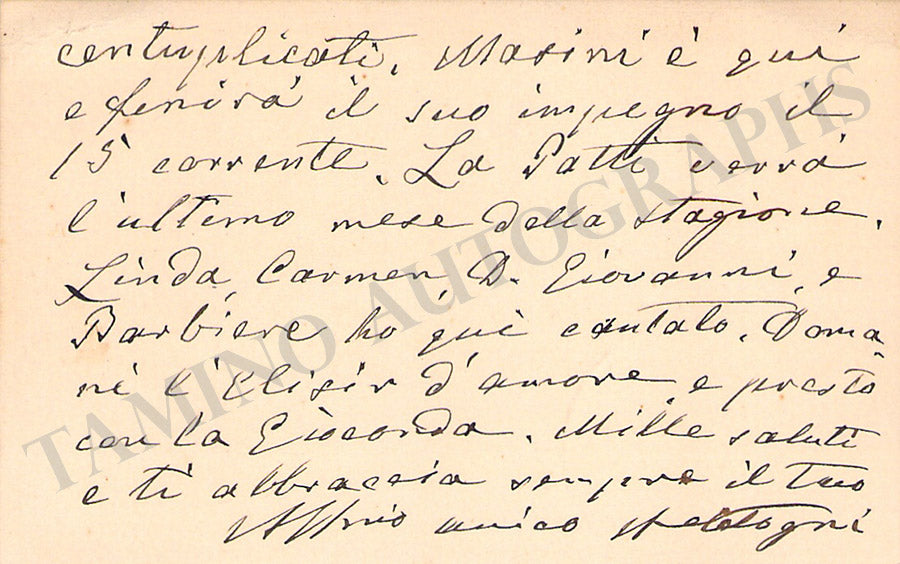 centuplicati. Masini è qui
e finirá il suo impegno il
15 corrente. La Patti verrá
l'ultimo mese della stagione.
Linda, Carmen, D. Giovanni, e
Barbiere ho quì cantato. Doma-
ni l'Elisir d'amore e presto
con la Gioconda. Mille saluti
e ti abbraccia sempre il tuo
Affmo amico
TAMINO AUTOGRAPHS